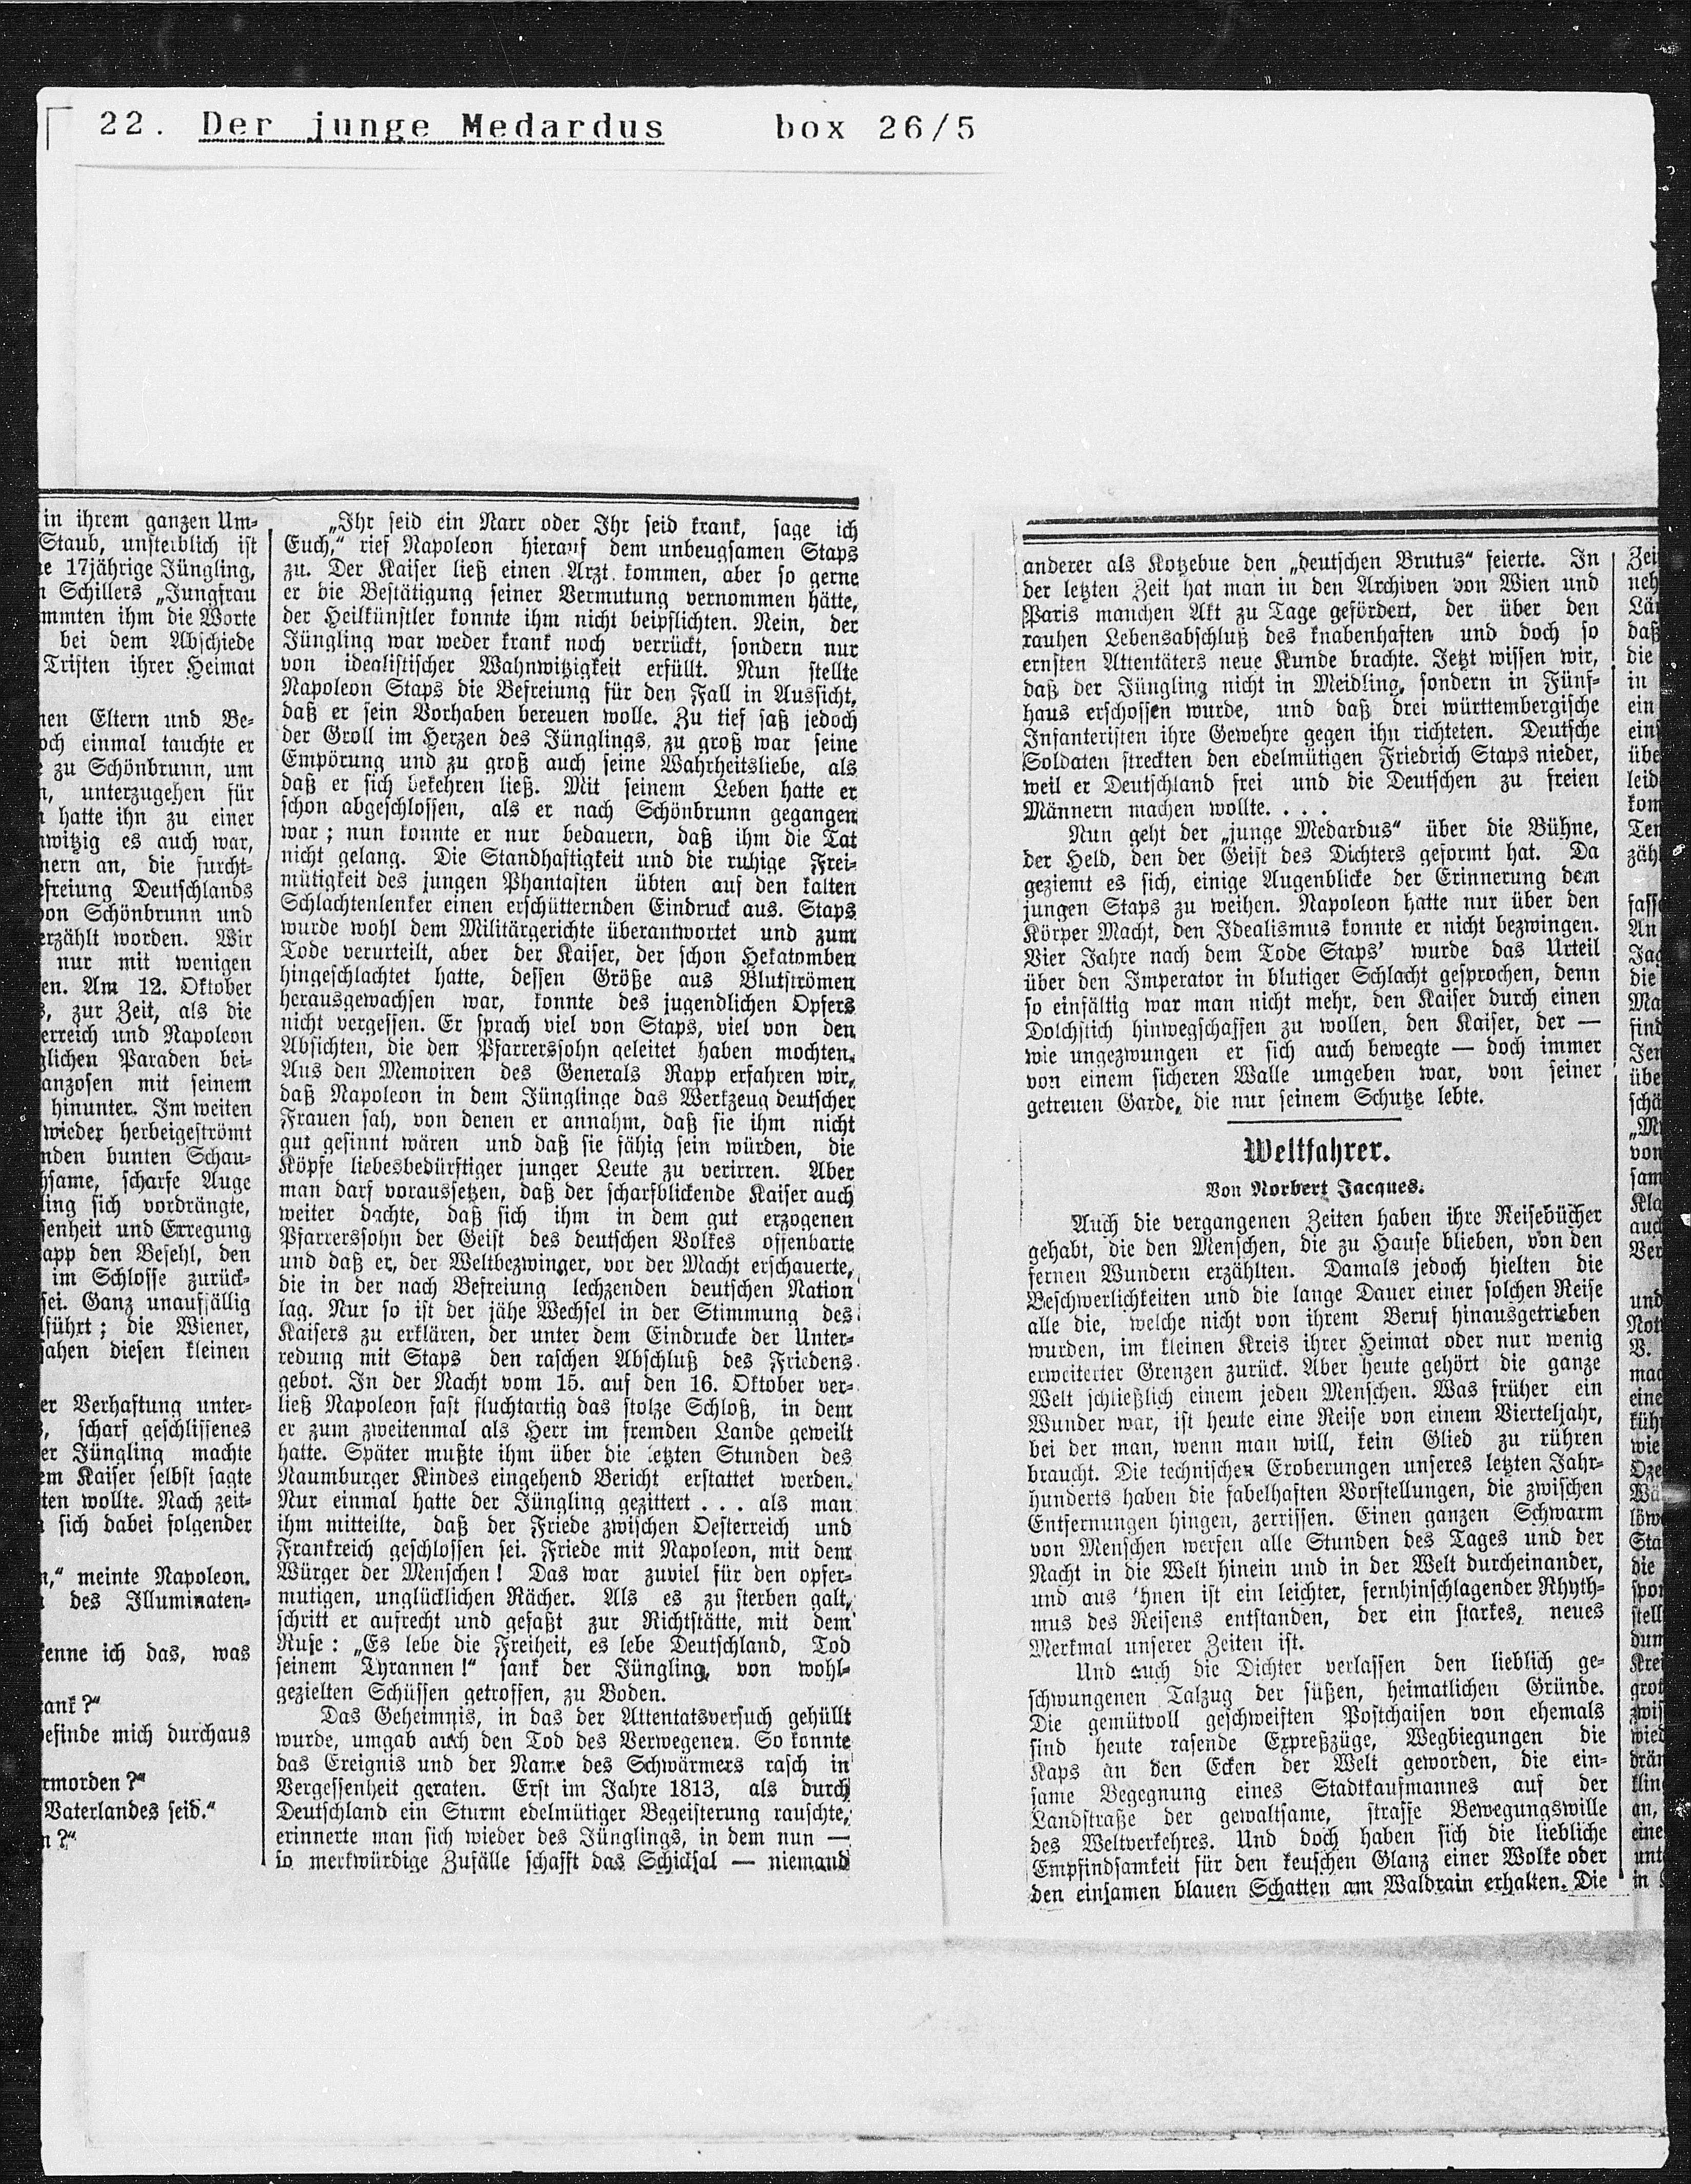 22. Der junge Medardus box 26/5
in ihrem ganzen Um-
Staub, unsterblich ist
17jährige Jüngling,
Schillers „Jungfrau
ihm die Worte
bei dem Abschiede
Tristen ihrer Heimat
Eltern und Be-
einmal tauchte er
zu Schönbrunn, um
unterzugehen für
hatte ihn zu einer
es auch war,
an, die furcht-
Deutschlands
von Schönbrunn und
erzählt worden. Wir
nur mit wenigen
Am 12. Oktober
zur Zeit, als die
und Napoleon
Paraden bei-
mit seinem
hinunter. Im weiten
wieder herbeigeströmt
bunten Schau-
scharfe Auge
sich vordrängte,
und Erregung
den Befehl, den
im Schlosse zurück-
sei. Ganz unauffällig
die Wiener,
sahen diesen kleinen
Verhaftung unter-
scharf geschliffenes
Jüngling machte
Kaiser selbst sagte
wollte. Nach zeit-
sich dabei folgender
meinte Napoleon.
des Illuminaten-
kenne ich das, was
befinde mich durchaus
Vaterlandes seid.“
„Ihr seid ein Narr oder Ihr seid krank, sage ich
Euch,“ rief Napoleon hierauf dem unbeugsamen Staps
zu. Der Kaiser ließ einen Arzt kommen, aber so gerne
er die Bestätigung seiner Vermutung vernommen hätte,
der Heilkünstler konnte ihm nicht beipflichten. Nein, der
Jüngling war weder krank noch verrückt, sondern nur
von idealistischer Wahnwitzigkeit erfüllt. Nun stellte
Napoleon Staps die Befreiung für den Fall in Aussicht,
daß er sein Vorhaben bereuen wolle. Zu tief saß jedoch
der Groll im Herzen des Jünglings, zu groß war seine
Empörung und zu groß auch seine Wahrheitsliebe, als
daß er sich bekehren ließ. Mit seinem Leben hatte er
schon abgeschlossen, als er nach Schönbrunn gegangen
war; nun konnte er nur bedauern, daß ihm die Tat
nicht gelang. Die Standhaftigkeit und die ruhige Frei-
mütigkeit des jungen Phantasten übten auf den kalten
Schlachtenlenker einen erschütternden Eindruck aus. Staps
wurde wohl dem Militärgerichte überantwortet und zum
Tode verurteilt, aber der Kaiser, der schon Hekatomben
hingeschlachtet hatte, dessen Größe aus Blutströmen
herausgewachsen war, konnte des jugendlichen Opfers
nicht vergessen. Er sprach viel von Staps, viel von den
Absichten, die den Pfarrerssohn geleitet haben mochten.
Aus den Memoiren des Generals Rapp erfahren wir,
daß Napoleon in dem Jünglinge das Werkzeug deutscher
Frauen sah, von denen er annahm, daß sie ihm nicht
gut gesinnt wären und daß sie fähig sein würden, die
Köpfe liebesbedürftiger junger Leute zu verirren. Aber
man darf voraussetzen, daß der scharfblickende Kaiser auch
weiter dachte, daß sich ihm in dem gut erzogenen
Pfarrerssohn der Geist des deutschen Volkes offenbarte
und daß er, der Weltbezwinger, vor der Macht erschauerte,
die in der nach Befreiung lechzenden deutschen Nation
lag. Nur so ist der jähe Wechsel in der Stimmung des
Kaisers zu erklären, der unter dem Eindrucke der Unter-
redung mit Staps den raschen Abschluß des Friedens
gebot. In der Nacht vom 15. auf den 16. Oktober ver-
ließ Napoleon fast fluchtartig das stolze Schloß, in dem
er zum zweitenmal als Herr im fremden Lande geweilt
hatte. Später mußte ihm über die letzten Stunden des
Naumburger Kindes eingehend Bericht erstattet werden.
Nur einmal hatte der Jüngling gezittert . . . als man
ihm mitteilte, daß der Friede zwischen Oesterreich und
Frankreich geschlossen sei. Friede mit Napoleon, mit dem
Würger der Menschen! Das war zuviel für den opfer-
mutigen, unglücklichen Rächer. Als es zu sterben galt,
schritt er aufrecht und gefaßt zur Richtstätte, mit dem
Rufe: „Es lebe die Freiheit, es lebe Deutschland, Tod
seinem Tyrannen!“ sank der Jüngling, von wohl-
gezielten Schüssen getroffen, zu Boden.
Das Geheimnis, in das der Attentatsversuch gehüllt
wurde, umgab auch den Tod des Verwegenen. So konnte
das Ereignis und der Name des Schwärmers rasch in
Vergessenheit geraten. Erst im Jahre 1813, als durch
Deutschland ein Sturm edelmütiger Begeisterung rauschte,
erinnerte man sich wieder des Jünglings, in dem nun —
so merkwürdige Zufälle schafft das Schicksal — niemand
anderer als Kotzebue den „deutschen Brutus“ feierte. In
der letzten Zeit hat man in den Archiven von Wien und
Paris manchen Akt zu Tage gefördert, der über den
rauhen Lebensabschluß des knabenhaften und doch so
ernsten Attentäters neue Kunde brachte. Jetzt wissen wir,
daß der Jüngling nicht in Meidling, sondern in Fünf-
haus erschossen wurde, und daß drei württembergische
Infanteristen ihre Gewehre gegen ihn richteten. Deutsche
Soldaten streckten den edelmütigen Friedrich Staps nieder,
weil er Deutschland frei und die Deutschen zu freien
Männern machen wollte. . . .
Nun geht der „junge Medardus“ über die Bühne,
der Held, den der Geist des Dichters geformt hat. Da
geziemt es sich, einige Augenblicke der Erinnerung dem
jungen Staps zu weihen. Napoleon hatte nur über den
Körper Macht, den Idealismus konnte er nicht bezwingen.
Vier Jahre nach dem Tode Staps' wurde das Urteil
über den Imperator in blutiger Schlacht gesprochen, denn
so einfältig war man nicht mehr, den Kaiser durch einen
Dolchstich hinwegschaffen zu wollen, den Kaiser, der —
wie ungezwungen er sich auch bewegte — doch immer
von einem sicheren Walle umgeben war, von seiner
getreuen Garde, die nur seinem Schutze lebte.
Weltfahrer.
Von Norbert Jacques.
Auch die vergangenen Zeiten haben ihre Reisebücher
gehabt, die den Menschen, die zu Hause blieben, von den
fernen Wundern erzählten. Damals jedoch hielten die
Beschwerlichkeiten und die lange Dauer einer solchen Reise
alle die, welche nicht von ihrem Beruf hinausgetrieben
wurden, im kleinen Kreis ihrer Heimat oder nur wenig
erweiterter Grenzen zurück. Aber heute gehört die ganze
Welt schließlich einem jeden Menschen. Was früher ein
Wunder war, ist heute eine Reise von einem Vierteljahr,
bei der man, wenn man will, kein Glied zu rühren
braucht. Die technischen Eroberungen unseres letzten Jahr-
hunderts haben die fabelhaften Vorstellungen, die zwischen
Entfernungen hingen, zerrissen. Einen ganzen Schwarm
von Menschen werfen alle Stunden des Tages und der
Nacht in die Welt hinein und in der Welt durcheinander,
und aus ihnen ist ein leichter, fernhinschlagender Rhyth-
mus des Reisens entstanden, der ein starkes, neues
Merkmal unserer Zeiten ist.
Und auch die Dichter verlassen den lieblich ge-
schwungenen Talzug der süßen, heimatlichen Gründe.
Die gemütvoll geschweiften Postchaisen von ehemals
sind heute rasende Expreßzüge, Wegbiegungen die
Kaps an den Ecken der Welt geworden, die ein-
same Begegnung eines Stadtkaufmannes auf der
Landstraße der gewaltsame, straffe Bewegungswille
des Weltverkehres. Und doch haben sich die liebliche
Empfindsamkeit für den keuschen Glanz einer Wolke oder
den einsamen blauen Schatten am Waldrain erhalten. Die